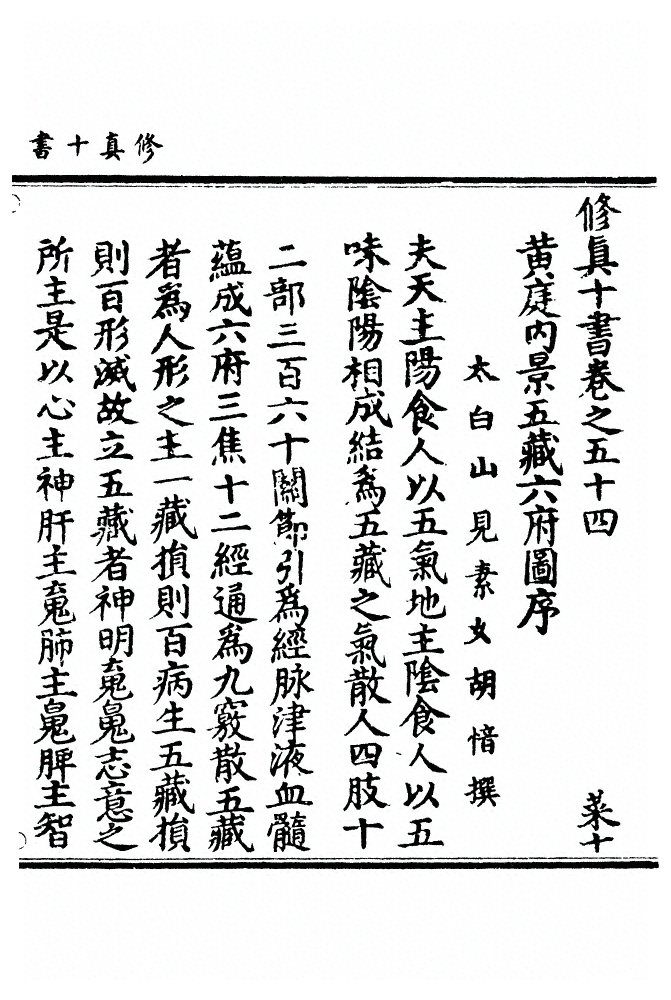 修真十書
修眞十書卷之五十四 菜十
黄庭内景五藏六府圖序
太白山見素女胡愔撰
夫天主陽食人以五氣地主陰食人以五
味陰陽相成結為五藏之氣散人四肢十
二部三百六十關節引為經脉津液血髓
蘊成六府三焦十二經通為九竅散五藏
者為人形之主一藏損則百病生五藏損
則百形滅故立五藏者神明䰟䰠志意之
所主是以心主神肝主䰟肺主䰠脾主智